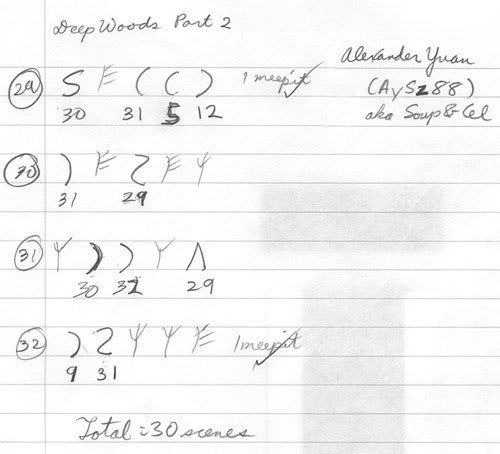 Deep Woods Part 2
Alexander Yuan
(AySz88)
aka Soup & Cel
29 S ( ( ) 1 meepit ✓
30 31 5 12
30 )
31 29
31 ) )
30 32 29
32 ) 1 meepit ✓
9 31
Total = 30 scenes